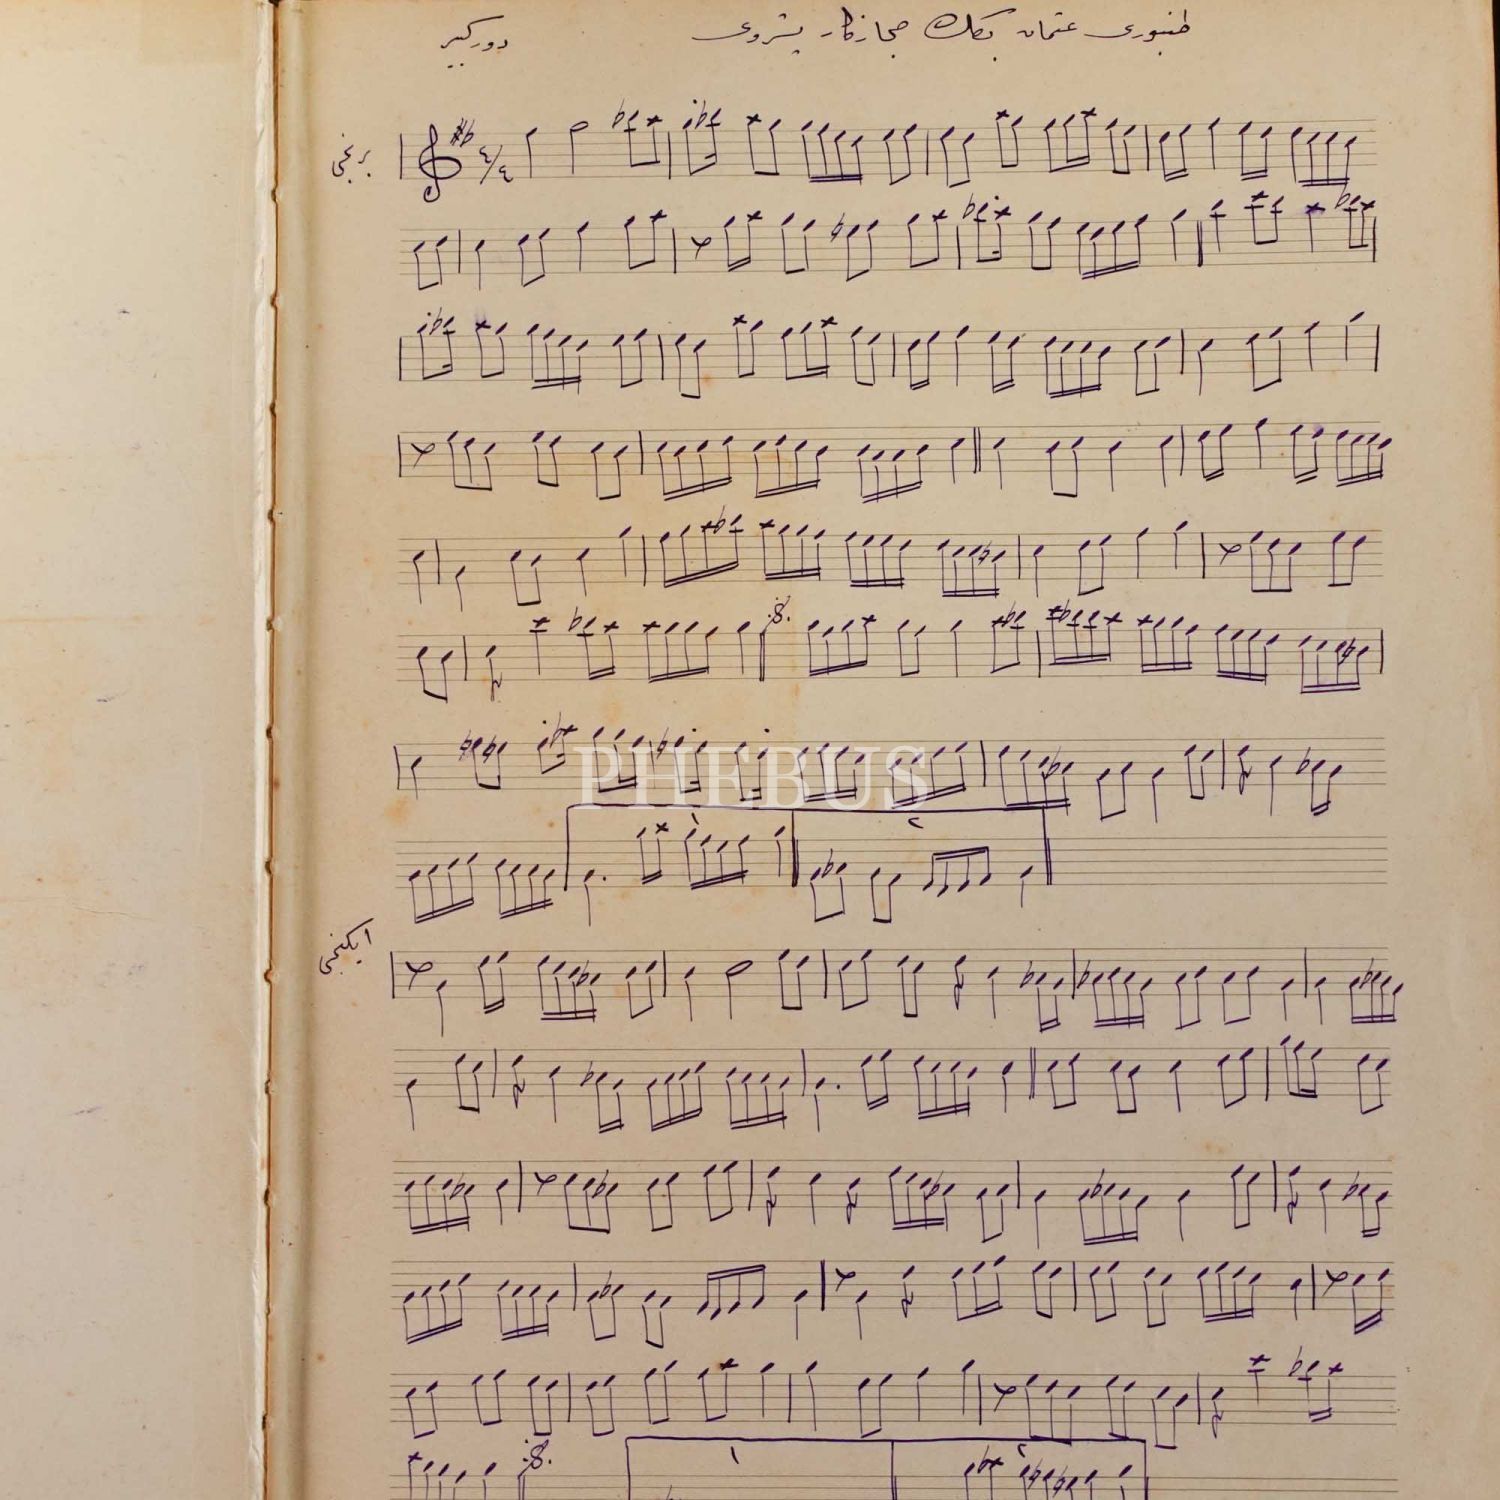 طنبوری عثمان بكك حجازكار پشروی
دور كبیر
برنجی
٤/٤
PHEBUS
١
٢
ایكنجی
١
٢